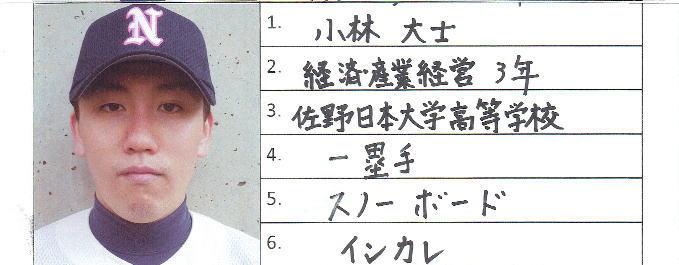 N
1. 小林 大士
2. 経済・産業経営 3年
3. 佐野日本大学高等学校
4. 一塁手
5. スノーボード
6. インカレ